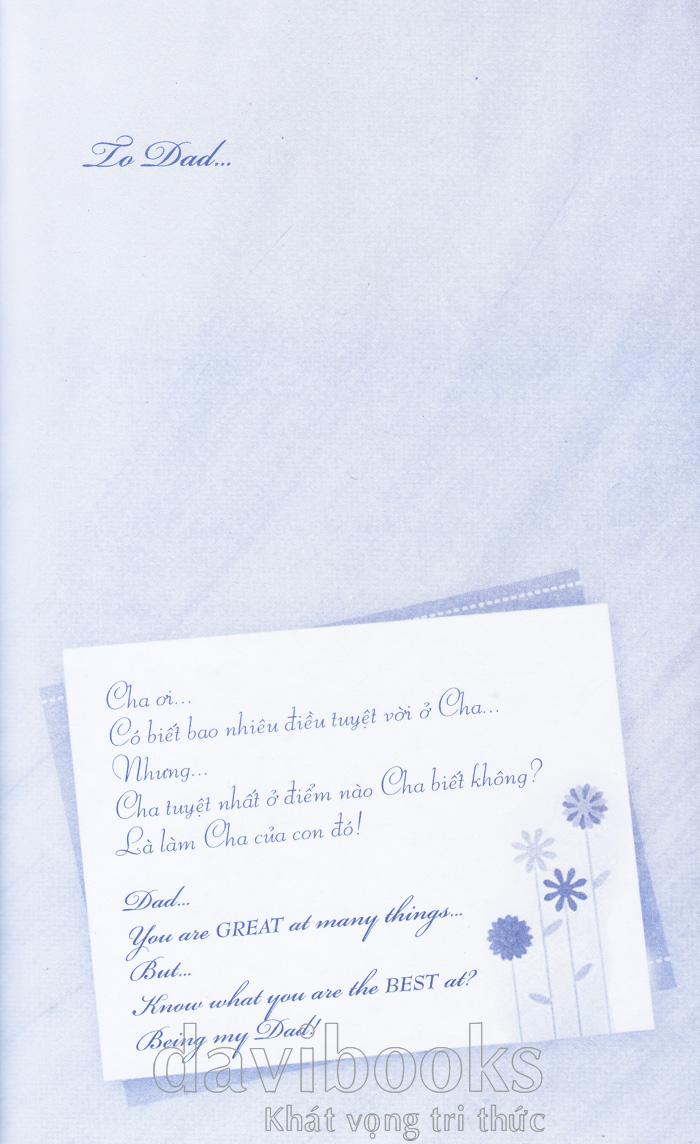 To Dad...
Cha ơi...
Có biết bao nhiêu điều tuyệt vời ở Cha...
Nhưng...
Cha tuyệt nhất ở điểm nào Cha biết không?
Là làm Cha của con đó!
Dad...
You are GREAT at many things...
But...
Know what you are the BEST at?
Being my Dad!
davibooks
Khát vọng tri thức